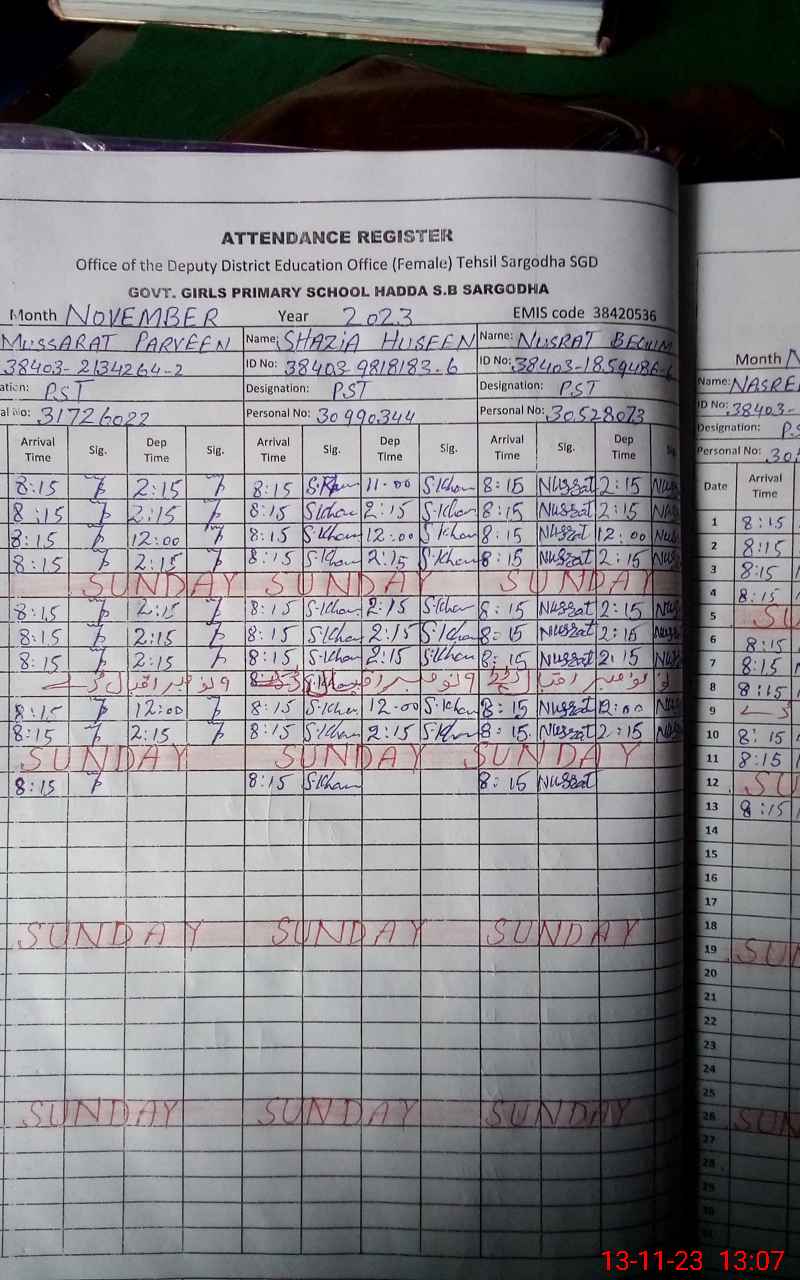 ATTENDANCE REGISTER
Office of the Deputy District Education Office (Female) Tehsil Sargodha SGD
GOVT. GIRLS PRIMARY SCHOOL HADDA S.B SARGODHA
Month NOVEMBER Year 2023 EMIS code 38420536
MUSSARAT PARVEEN Name: SHAZIA HUSEEN Name: NUSRAT BEGUM
38403-2134264-2 ID No: 38403-9818183-6 ID No: 38403-1859486-
ation: PST Designation: PST Designation: PST
al No: 31726022 Personal No: 30990344 Personal No: 30528073
Arrival Time Sig. Dep Time Sig. Arrival Time Sig. Dep Time Sig. Arrival Time Sig. Dep Time
8:15 2:15 8:15 S.Khan 11.00 S.Khan 8:15 Nusrat 2:15
8:15 2:15 8:15 S.Khan 2:15 S.Khan 8:15 Nusrat 2:15
8:15 12:00 8:15 S.Khan 12:00 S.Khan 8:15 Nusrat 12:00
8:15 2:15 8:15 S.Khan 2:15 S.Khan 8:15 Nusrat 2:15
SUNDAY SUNDAY SUNDAY
8:15 2:15 8:15 S.Khan 2:15 S.Khan 8:15 Nusrat 2:15
8:15 2:15 8:15 S.Khan 2:15 S.Khan 8:15 Nusrat 2:15
8:15 2:15 8:15 S.Khan 2:15 S.Khan 8:15 Nusrat 2:15
۹ نومبر اقبال ڈے
8:15 12:00 8:15 S.Khan 12:00 S.Khan 8:15 Nusrat 12:00
8:15 2:15 8:15 S.Khan 2:15 S.Khan 8:15 Nusrat 2:15
SUNDAY SUNDAY SUNDAY
8:15 8:15 S.Khan 8:15 Nusrat
SUNDAY SUNDAY SUNDAY
SUNDAY SUNDAY SUNDAY
Month N
Name: NASREE
ID No: 38403-
Designation: PS
Personal No: 30
Date Arrival Time
1 8:15
2 8:15
3 8:15
4 8:15
5 SU
6 8:15
7 8:15
8 8:15
9
10 8:15
11 8:15
12 SU
13 8:15
14
15
16
17
18
19 SUN
20
21
22
23
24
25
26 SUN
27
28
29
30
13-11-23 13:07